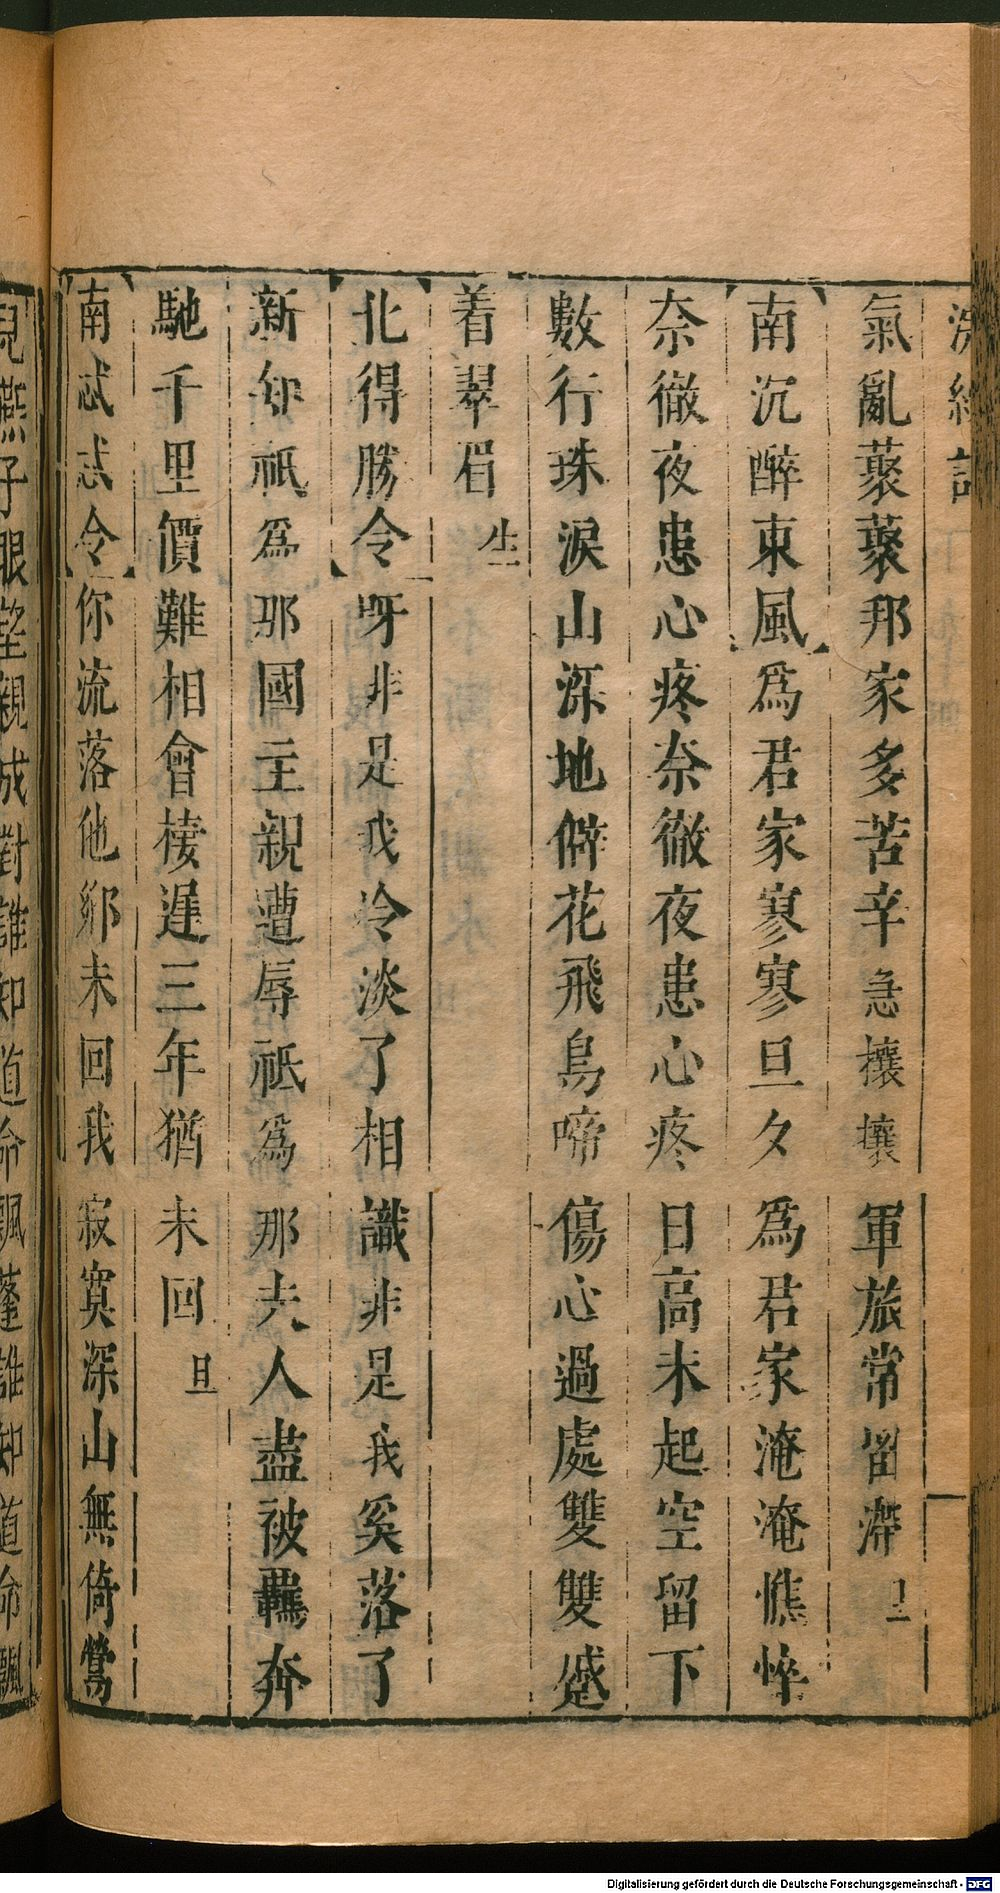 浣紗記
氣亂蘂蘂邦家多苦辛急攘攘軍旅常留滯 旦
南沉醉東風爲君家寥寥旦夕爲君家淹淹憔悴
奈徹夜患心疼奈徹夜患心疼日高未起空留下
數行珠淚山深地僻花飛鳥啼傷心過處雙雙蹙
着翠眉 生
北得勝令呀非是我冷淡了相識非是我奚落了
新知祇爲那國主親遭辱祇爲那夫人盡被羈奔
馳千里價難相會棲遲三年猶未回 旦
南忒忒令你流落他鄉未回我寂寞深山無倚鶯
兒燕子眼望親成對誰知道命飄蓬誰知道命飄
Digitalisierung gefördert durch die Deutsche Forschungsgemeinschaft - DFG